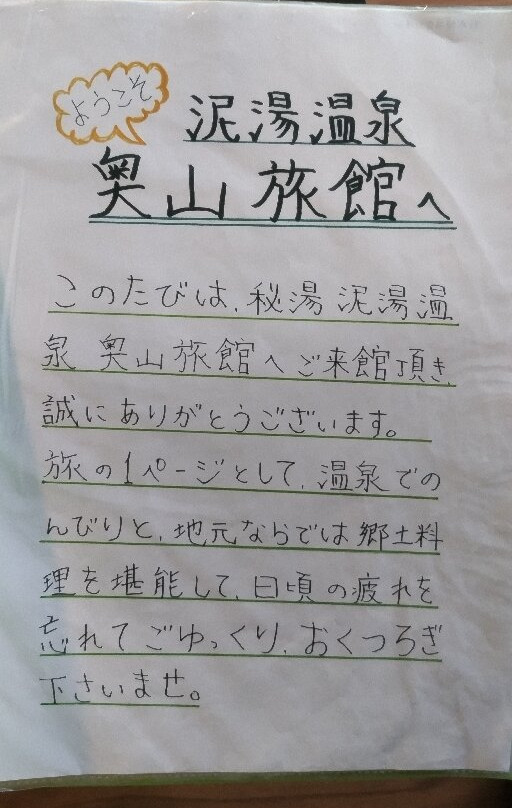 ようこそ
泥湯温泉
奥山旅館へ
このたびは、秘湯 泥湯温
泉 奥山旅館へご来館頂き、
誠にありがとうございます。
旅の1ページとして、温泉での
んびりと、地元ならでは郷土料
理を堪能して、日頃の疲れを
忘れてごゆっくり、おくつろぎ
下さいませ。